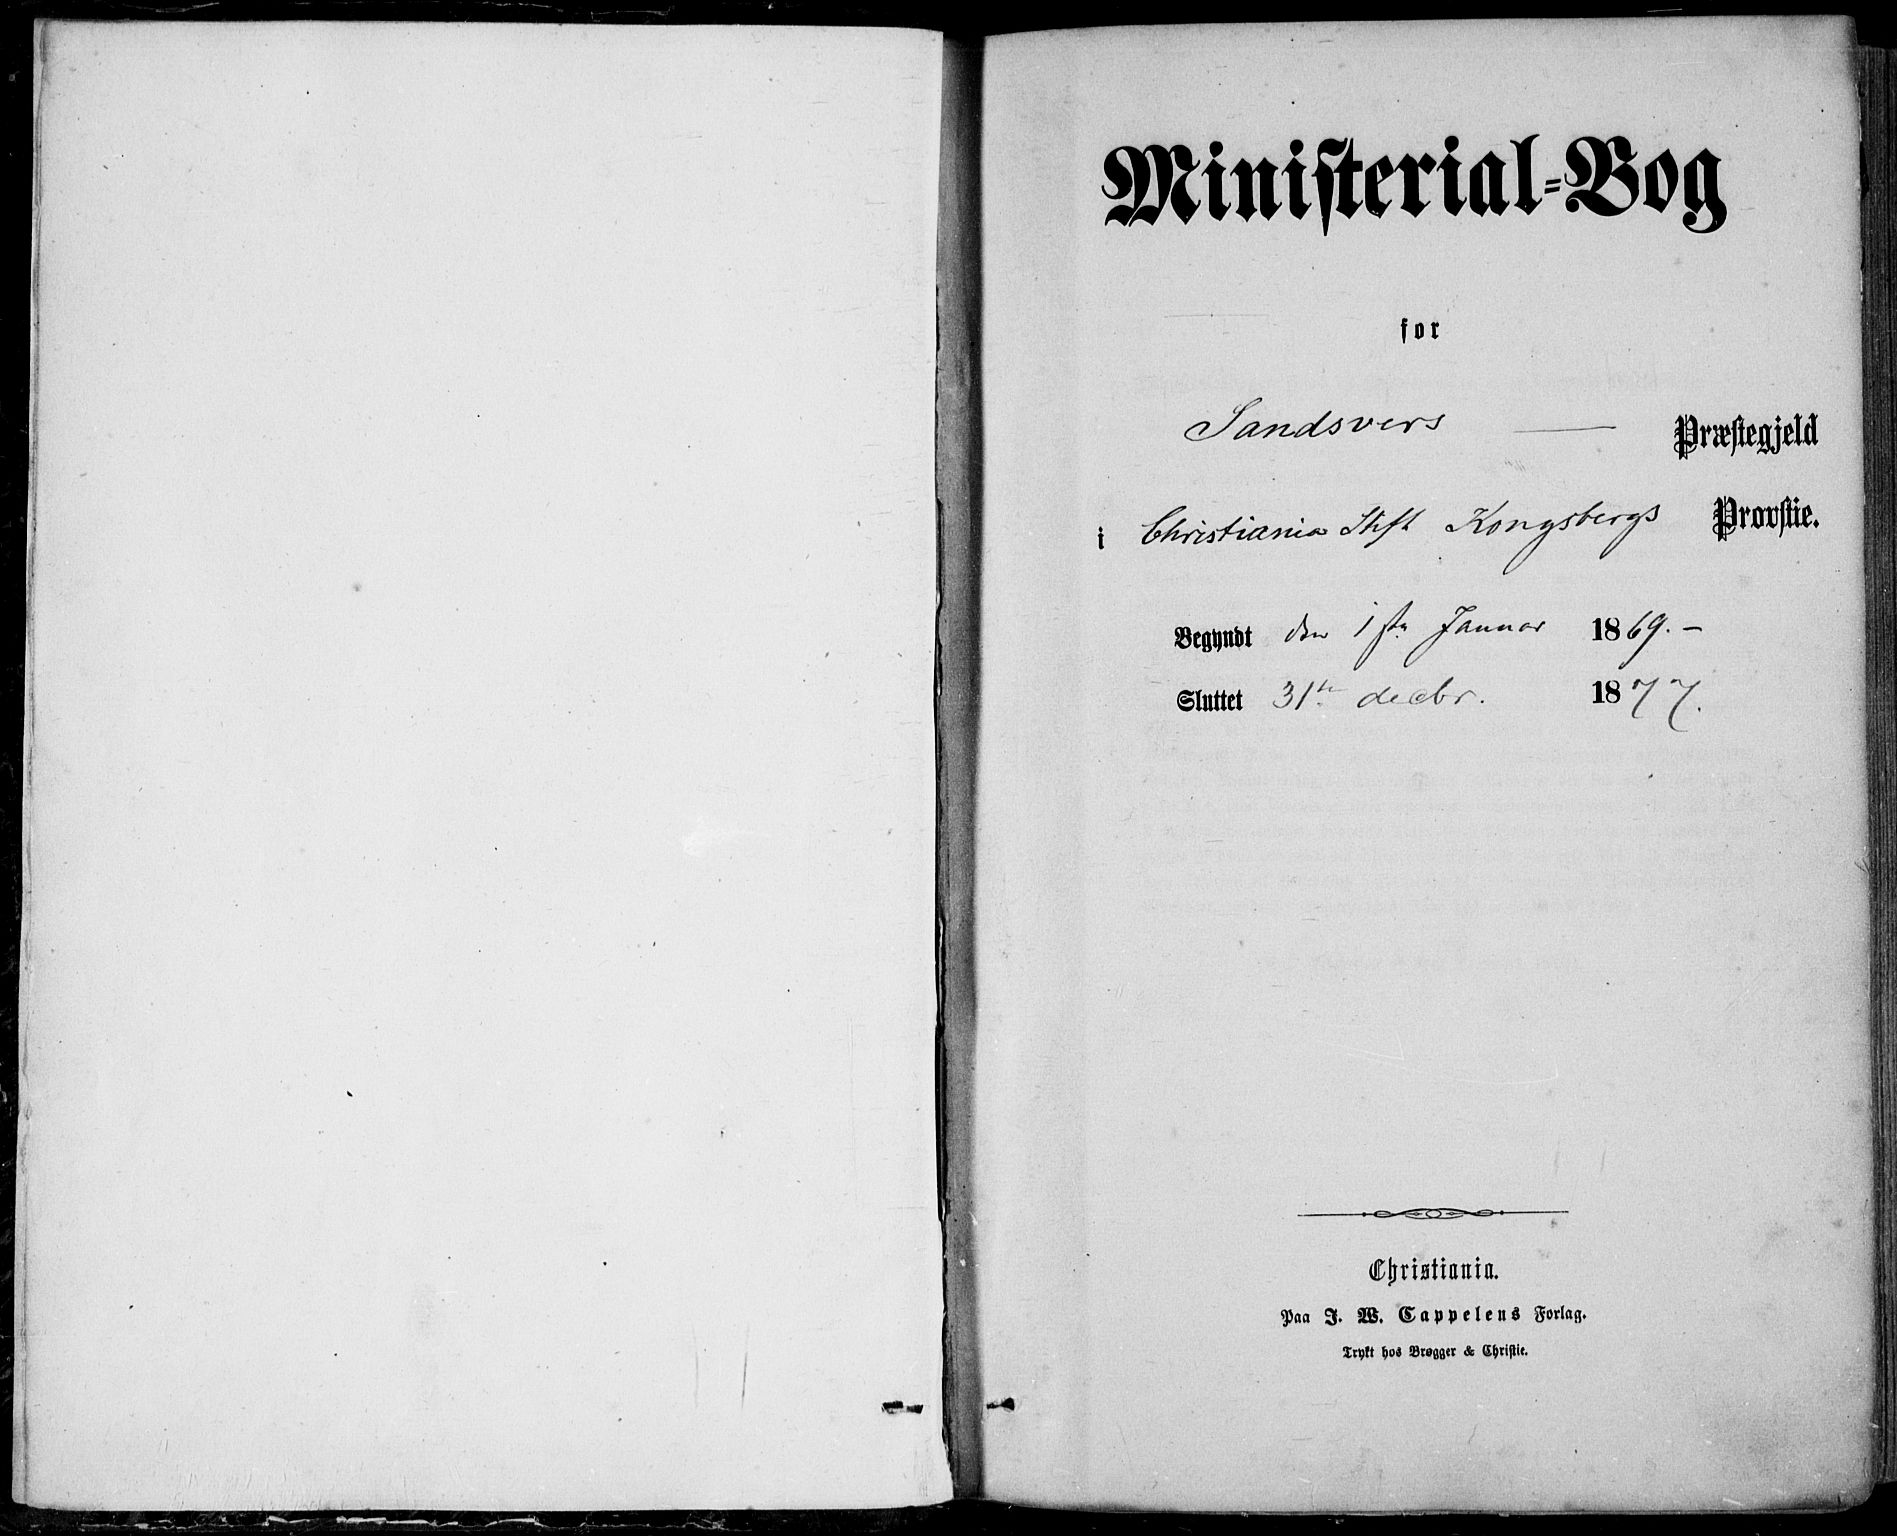 Ministerial-Bog
for
Sandsvers Præstegjeld
i Christiania Stift Kongsbergs Provstie.
Begyndt den 1ste Januar 1869. –
Sluttet 31te decbr. 1877.
Christiania.
Paa J. W. Cappelens Forlag.
Trykt hos Brøgger & Christie.